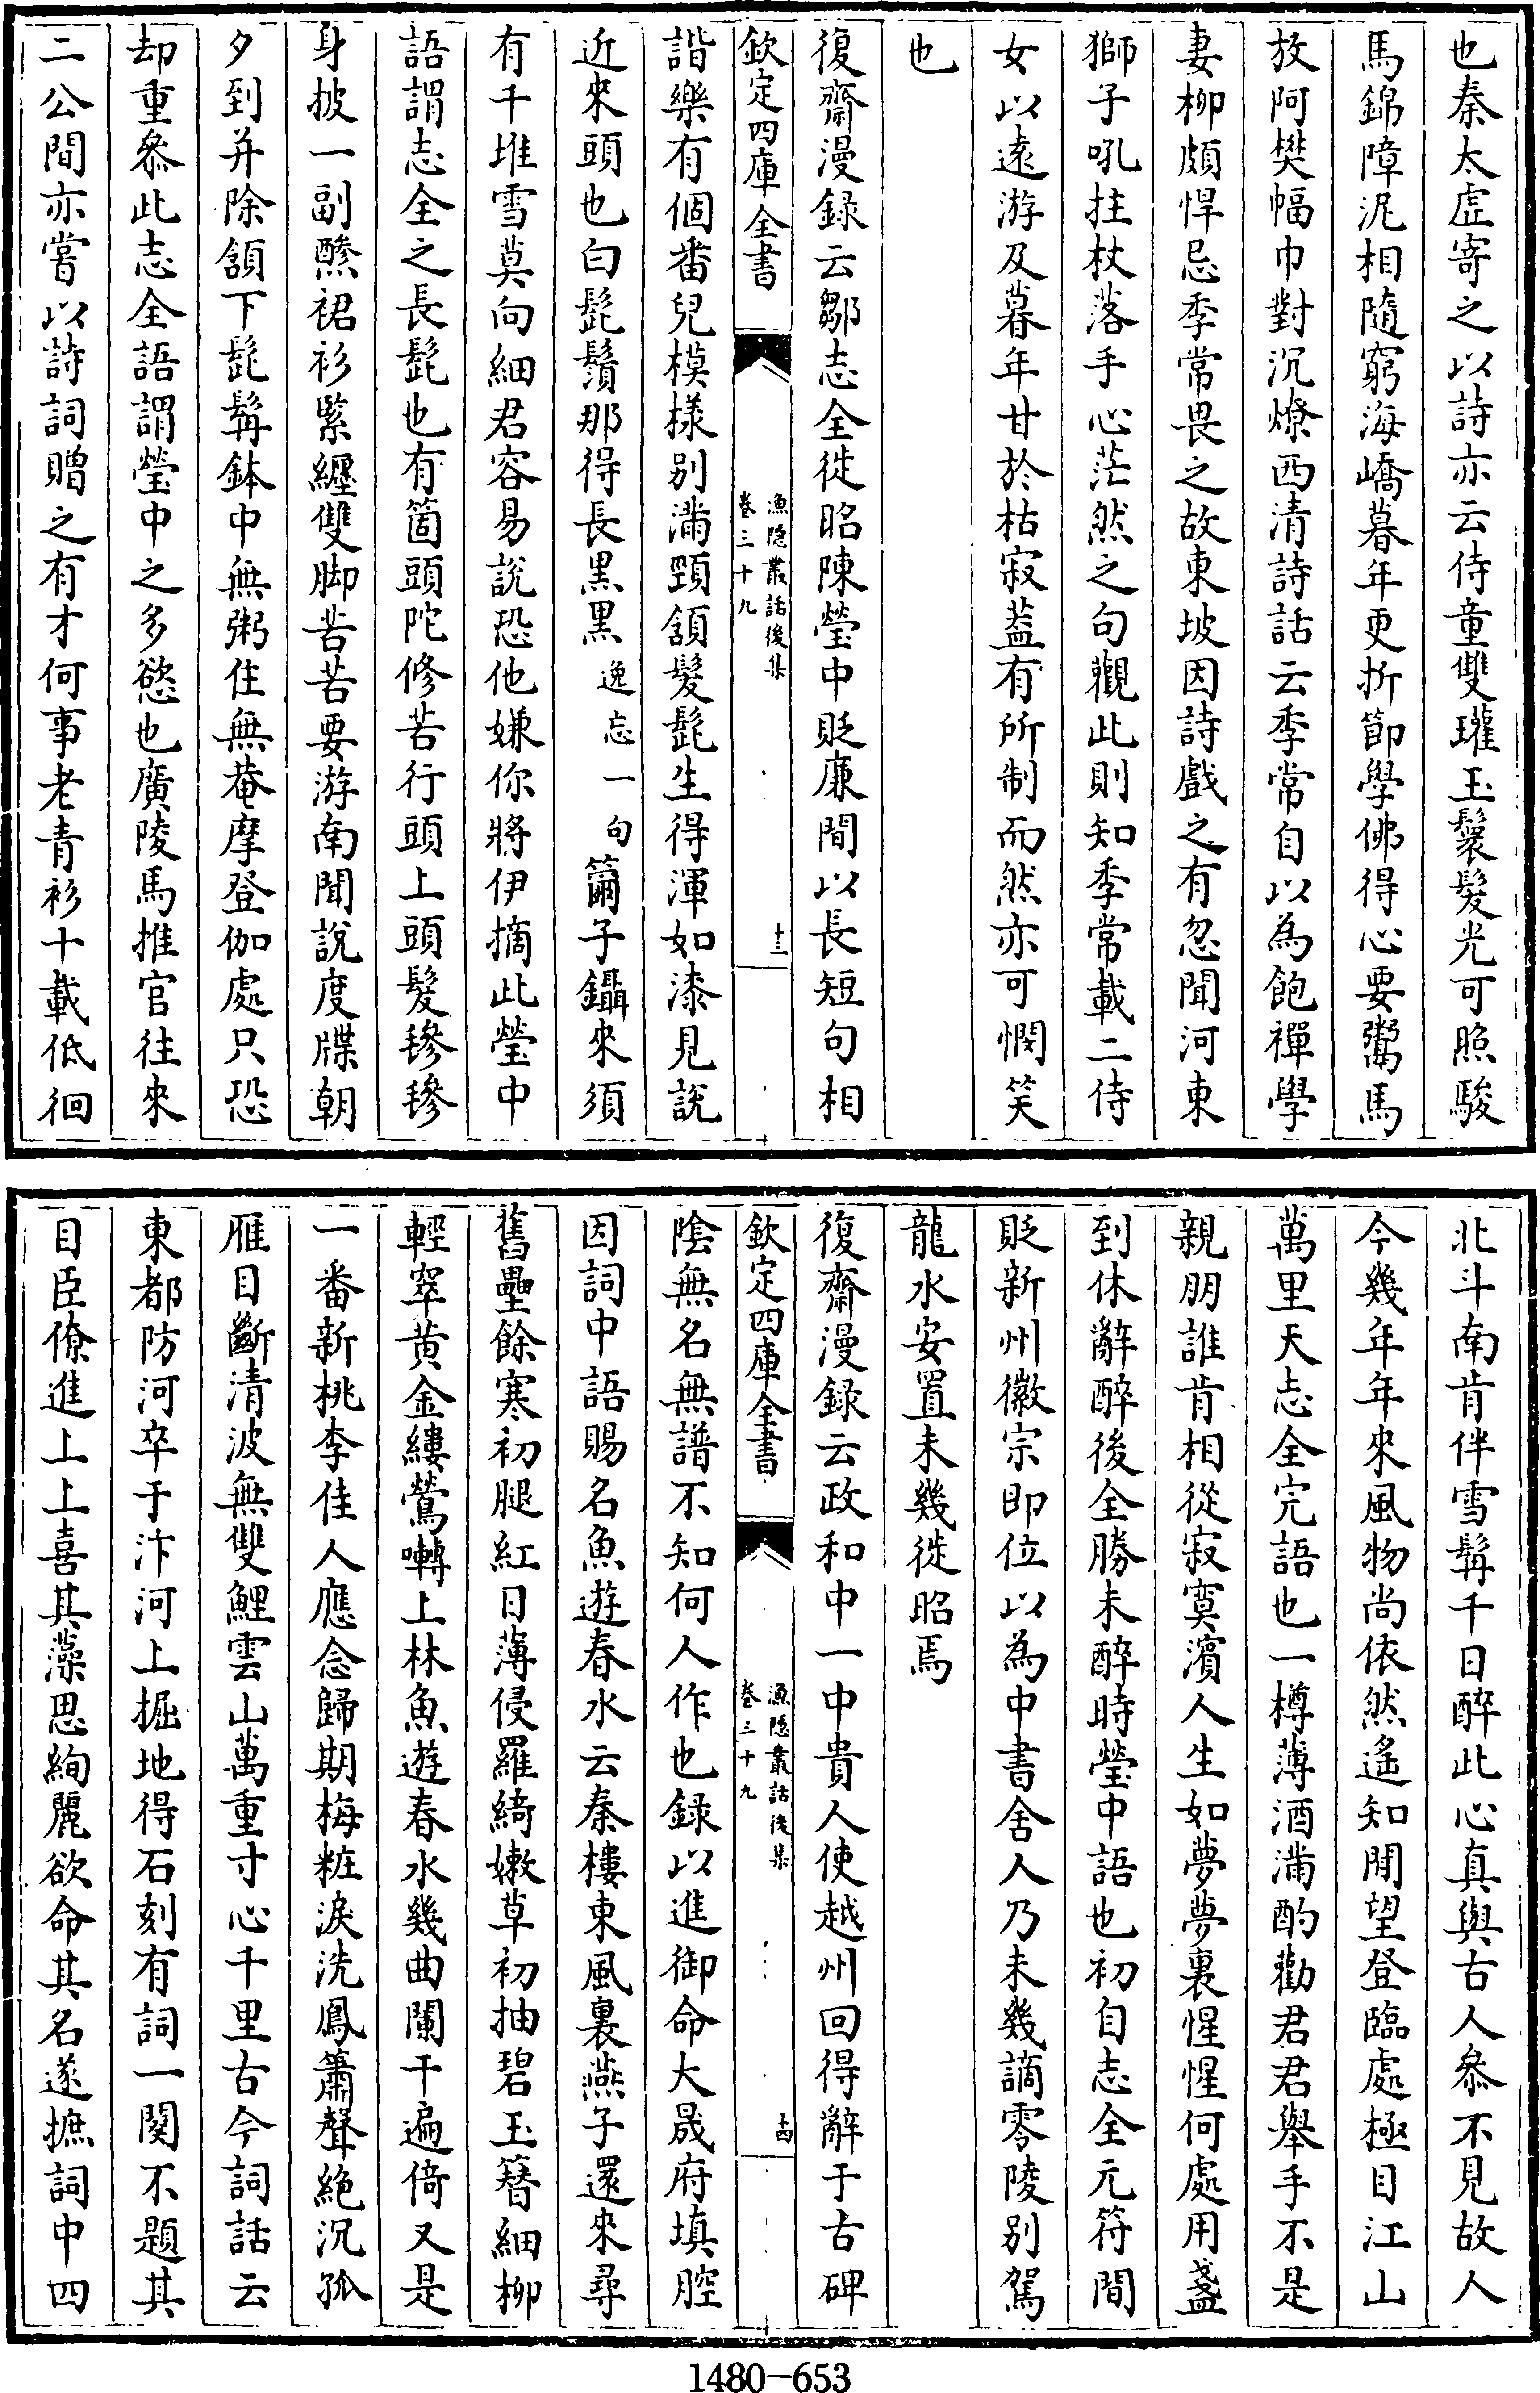 也秦太虛寄之以詩亦云侍童雙瓘玉鬟髮光可照駿
馬錦障泥相隨窮海嶠暮年更折節學佛得心要鬻馬
放阿樊幅巾對沉燎西清詩話云季常自以為飽禪學
妻柳頗悍忌季常畏之故東坡因詩戲之有忽聞河東
獅子吼拄杖落手心茫然之句觀此則知季常載二侍
女以遠游及暮年甘於枯寂葢有所制而然亦可憫笑
也
復齋漫録云鄒志全徙昭陳瑩中貶廉間以長短句相
欽定四庫全書
漁隱叢話後集
卷三十九
十三
諧樂有個番兒模様別滿頸頷髮髭生得渾如漆見說
近來頭也白髭鬚那得長黒黒逸忘一句籋子鑷來須
有千堆雪莫向細君容易說恐他嫌你將伊摘此瑩中
語謂志全之長髭也有箇頭陀修苦行頭上頭髮毿毿
身披一副醦裙衫緊纒雙脚苦苦要游南聞說度牒朝
夕到并除頷下髭髯鉢中無粥住無菴摩登伽處只恐
却重叅此志全語謂瑩中之多慾也廣陵馬推官往來
二公間亦嘗以詩詞贈之有才何事老青衫十載低徊
北斗南肯伴雪髯千日醉此心真與古人叅不見故人
今幾年年來風物尚依然遙知閒望登臨處極目江山
萬里天志全完語也一樽薄酒滿酌勸君君舉手不是
親朋誰肯相從寂寞濱人生如夢夢裏惺惺何處用盞
到休辭醉後全勝未醉時瑩中語也初自志全元符間
貶新州徽宗即位以為中書舍人乃未幾謫零陵別駕
龍水安置未幾徙昭焉
復齋漫録云政和中一中貴人使越州回得辭于古碑
欽定四庫全書
漁隱叢話後集
卷三十九
十四
陰無名無譜不知何人作也録以進御命大晟府填腔
因詞中語賜名魚遊春水云秦樓東風裏燕子還來尋
舊壘餘寒初腿紅日薄侵羅綺嫩草初抽碧玉簪細柳
輕窣黄金縷鶯囀上林魚遊春水幾曲闌干遍倚又是
一番新桃李佳人應念歸期梅粧淚洗鳳簫聲絶沉孤
雁目斷清波無雙鯉雲山萬重寸心千里古今詞話云
東都防河卒于汴河上掘地得石刻有詞一闋不題其
目臣僚進上上喜其藻思絢麗欲命其名遂摭詞中四
1480-653